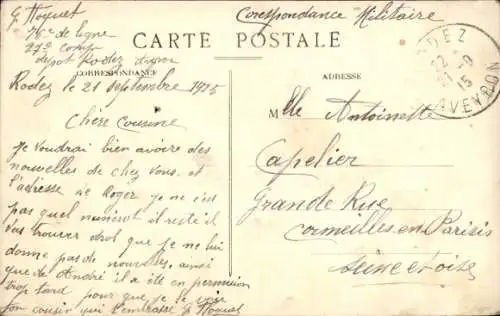 G Hoquet
de ligne
27e Comp
depot Rodez
Corespondance Militaire
CARTE POSTALE
CORRESPONDANCE
ADRESSE
RODEZ
22
21-9
15
AVEYRON
Rodez le 21 Septembre 1915
Chere Cousine
Je voudrai bien avoire des
nouvelles de chez vous. et
l'adresse de Roger je ne sais
pas quel numerot il reste il
vas trouver drol que je ne lui
donne pas de nouvelles, ainsi
que de André il a été en permision
trop tard pour que je le voir
ton cousin qui t'embrasse G Hoquet
Mlle Antoinette
Capelier
Grande Rue
Cormeilles en Parisis
Seine et oise